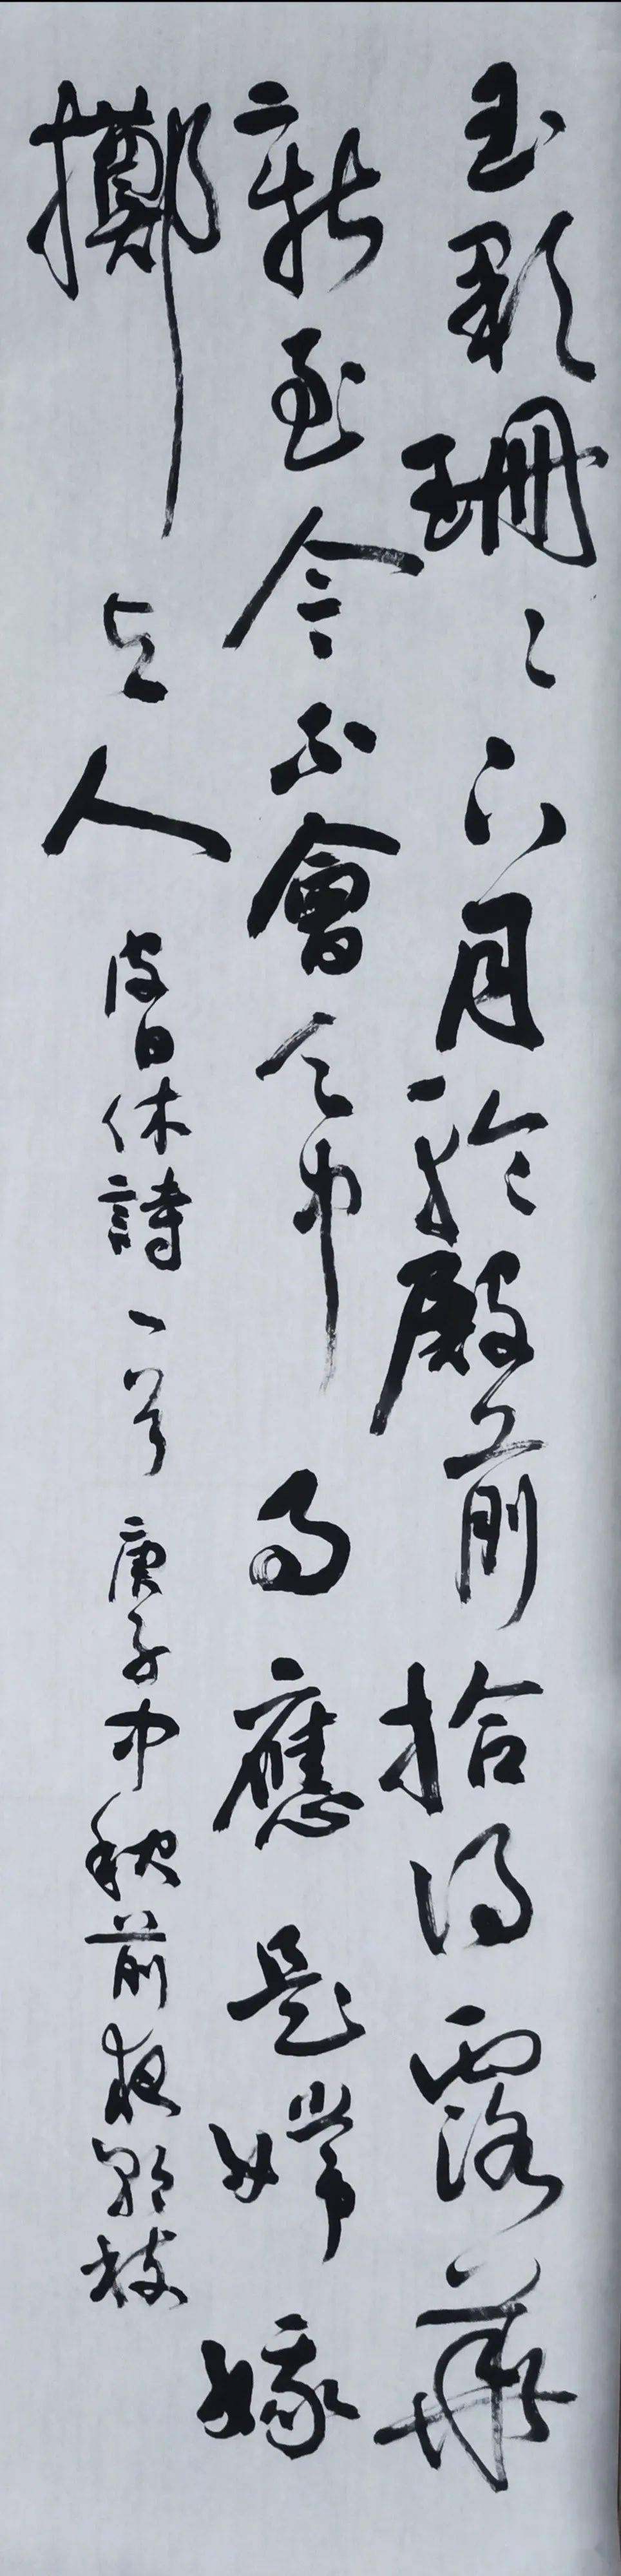 玉顆珊〻下月輪殿前拾得露華
新至今不會天中事應是嫦娥
擲与人 皮日休詩一首 庚子中秋前夜